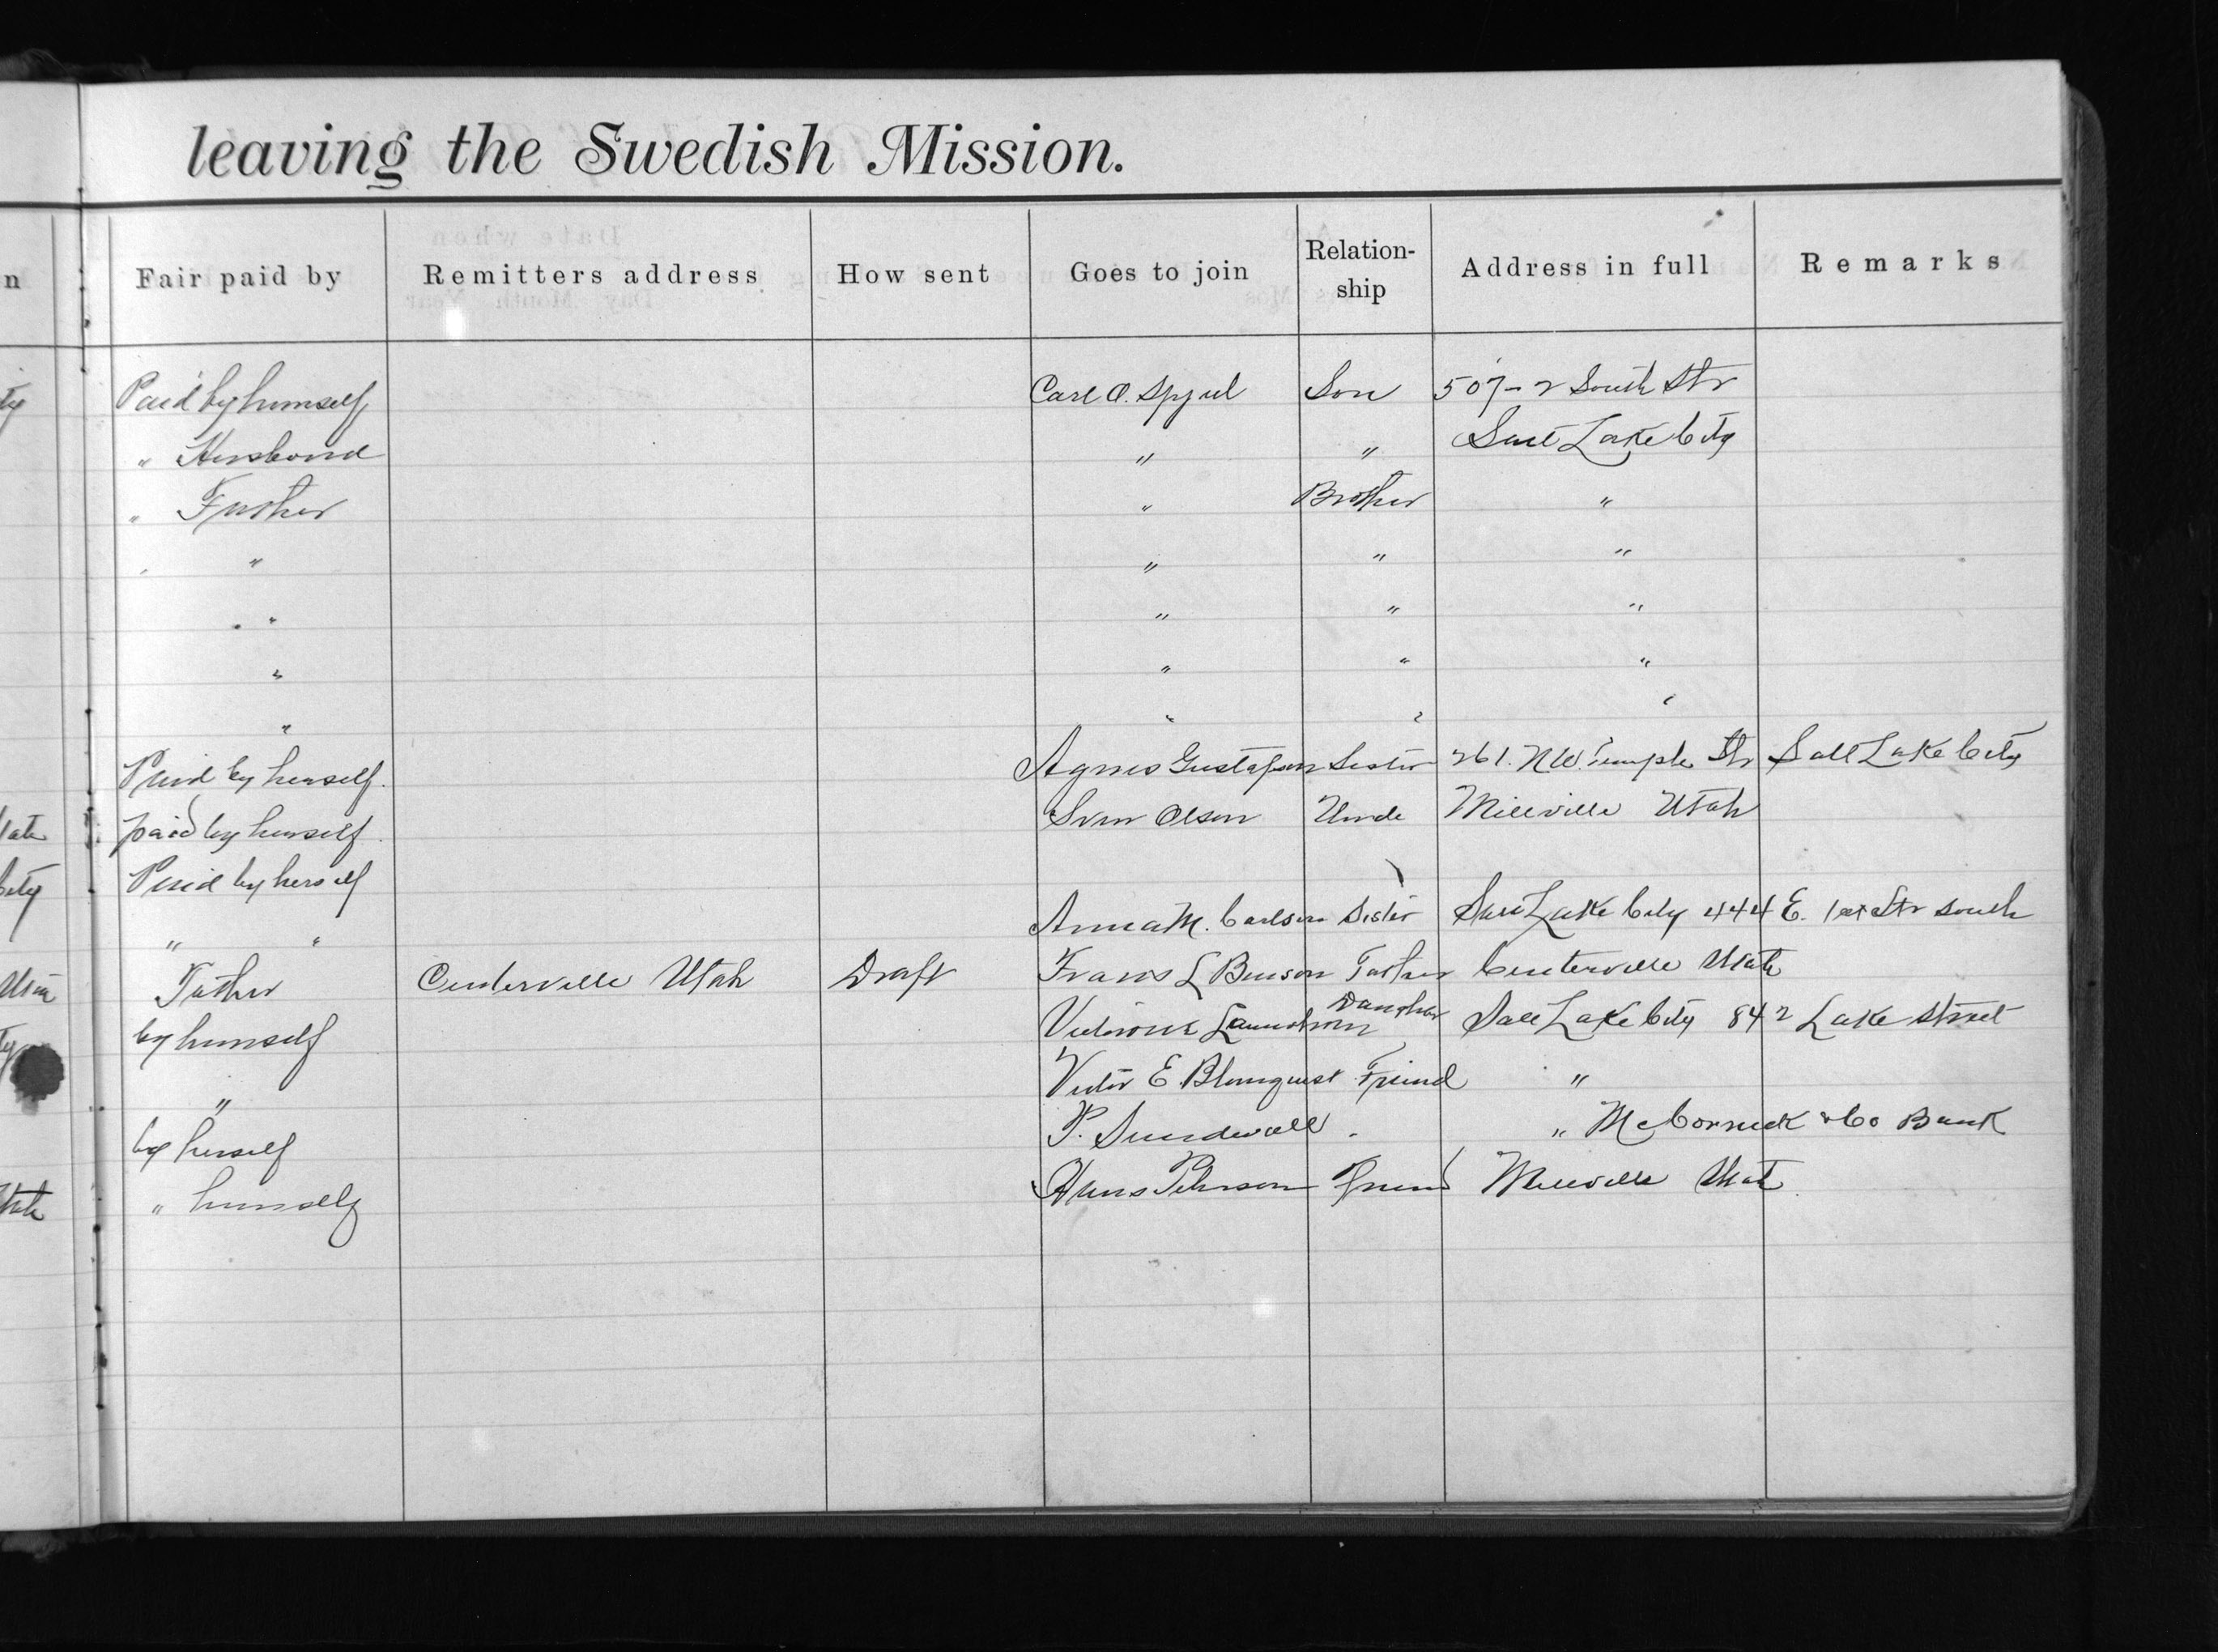 leaving the Swedish Mission.
n Fair paid by Remitters address How sent Goes to join Relation-ship Address in full Remarks
ty Paid by himself Carl O. Son 507-2 South Str
" Husband " " Salt Lake City
" Father " Brother "
" " " "
" " " "
" " " "
" " " "
Paid by herself. Agnes Gustafson Sister 261. N W. Temple Str Salt Lake City
paid by herself. Sven Olson Uncle Millville Utah
City Paid by herself
" " Anna M. Carlson Sister Salt Lake City 444 E. 1st Str South
Father Centerville Utah Draft Frans L Benson Father Centerville Utah
ty by himself Daughter Salt Lake City 842 Lake Street
" Victor E. Blomquist Friend "
by herself P. Sundwall " McCornick & Co Bank
" himself Hans Pehrson Friend Millville Utah